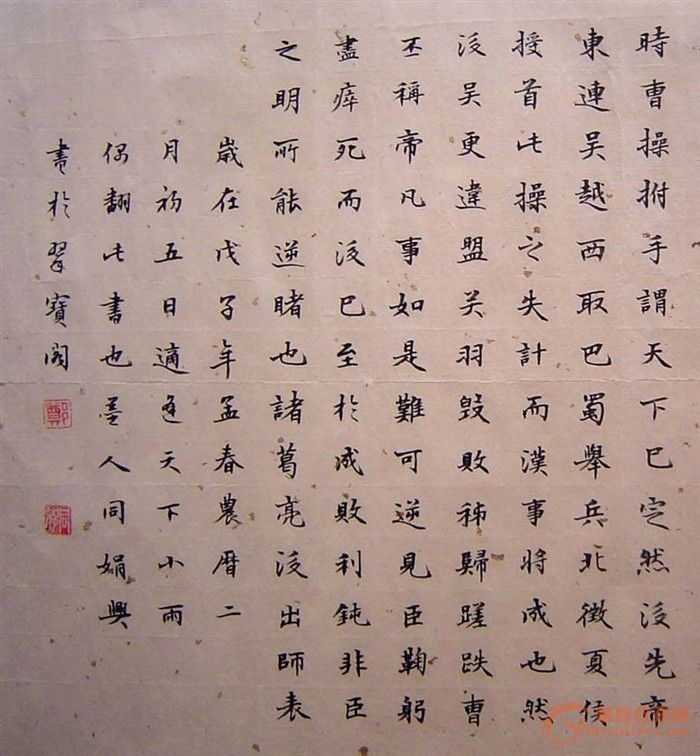 時曹操拊手謂天下已定然後先帝
東連吳越西取巴蜀舉兵北徵夏侯
授首此操之失計而漢事將成也然
後吳更違盟关羽毀敗秭歸蹉跌曹
丕稱帝凡事如是難可逆見臣鞠躬
盡瘁死而後已至於成敗利鈍非臣
之明所能逆睹也諸葛亮後出師表
歲在戊子年孟春農曆二
月初五日適逢天下小雨
偶翻此書也墨人同娟興
書於翠寶閣